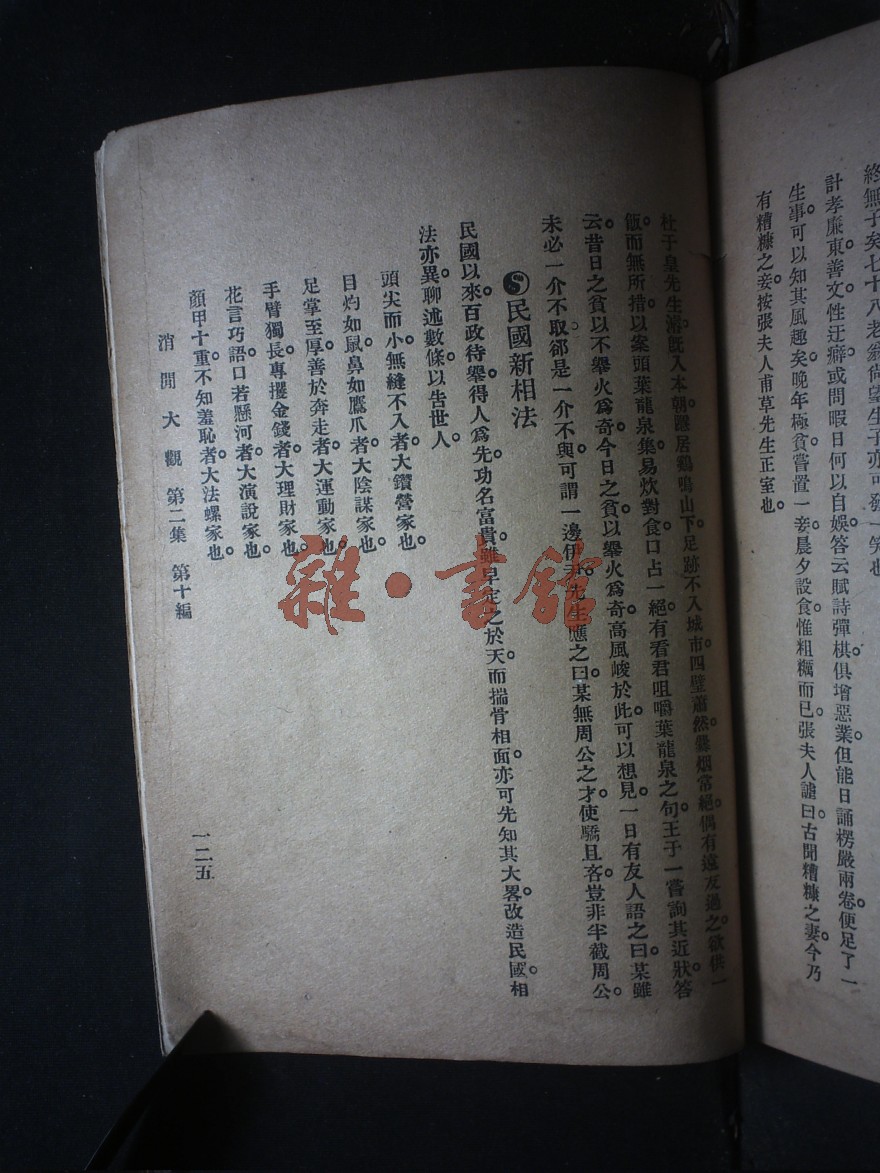 終無子矣七十八老翁尙望生子亦可發一笑也
計孝廉東善文性迂癖或問暇日何以自娛答云賦詩彈棋俱增惡業但能日誦楞嚴兩卷便足了一
生事可以知其風趣矣晚年極貧嘗置一妾晨夕設食惟粗糲而已張夫人謔曰古聞糟糠之妻今乃
有糟糠之妾按張夫人甫草先生正室也
杜于皇先生濬旣入本朝蹤居鷄鳴山下足跡不入城市四壁蕭然爨烟常絕偶有遠友過之欲供一
飯而無所措以案頭葉龍泉集易炊對食口占一絕有看君咀嚼葉龍泉之句王于一嘗詢其近狀答
云昔日之貧以不舉火爲奇今日之貧以舉火爲奇高風峻於此可以想見一日有友人語之曰某雖
未必一介不取卻是一介不與可謂一邊伊尹先生應之曰某無周公之才使驕且吝豈非半截周公
民國新相法
民國以來百政待舉得人爲先功名富貴雖早定之於天而揣骨相面亦可先知其大畧改造民國相
法亦異聊述數條以告世人
頭尖而小無縫不入者大鑽營家也
目灼如鼠鼻如鷹爪者大陰謀家也
足掌至厚善於奔走者大運動家也
手臂獨長專攫金錢者大理財家也
花言巧語口若懸河者大演說家也
顏甲十重不知羞恥者大法螺家也
消閒大觀 第二集 第十編
一二五
雜·書館